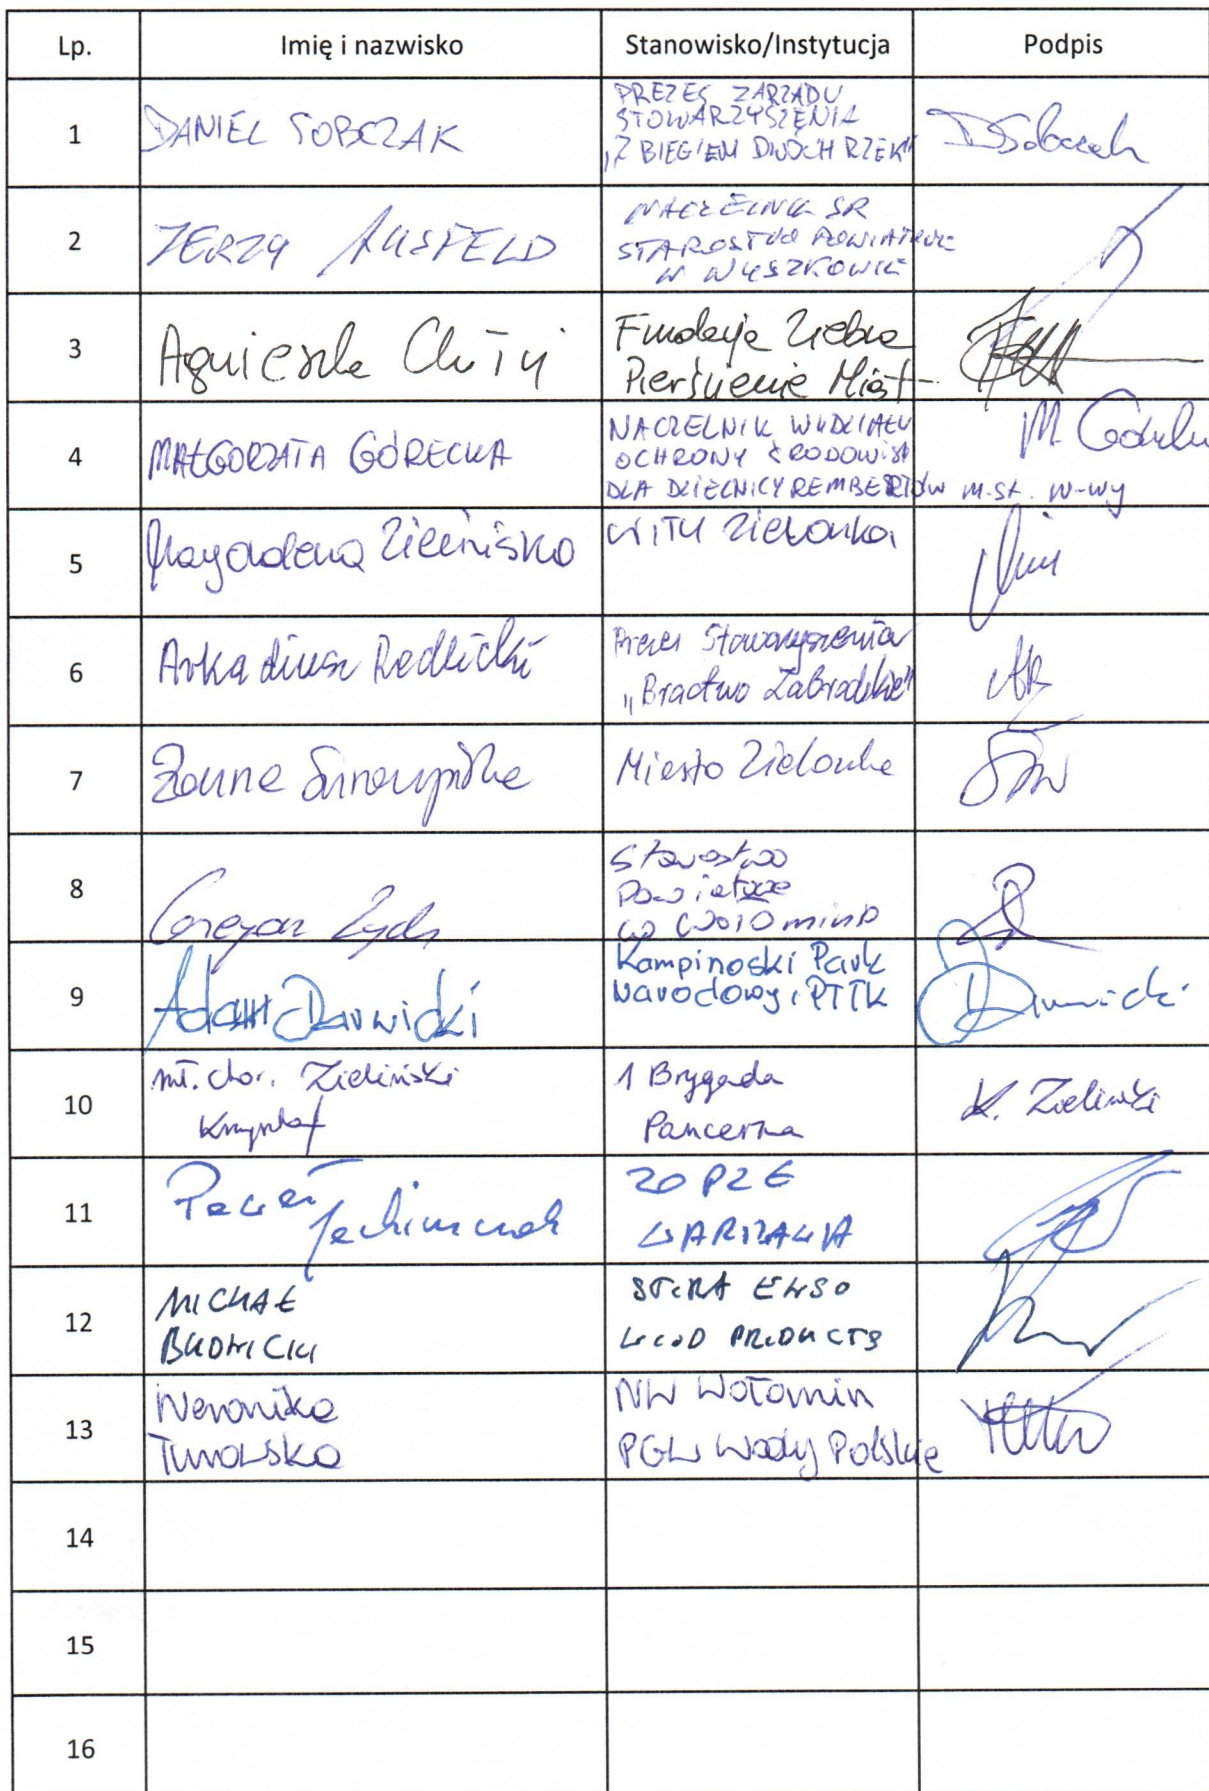 Lp. Imię i nazwisko Stanowisko/Instytucja Podpis
1 DANIEL SOBCZAK PREZES ZARZĄDU
STOWARZYSZENIA
„Z BIEGIEM DWÓCH RZEK" DSobczak
2 JERZY AUSFELD NACZELNIK SR
STAROSTWO POWIATOWE
W WYSZKOWIE
3 Agnieszka Fundacja Zielone
Pierścienie Miast
4 MAŁGORZATA GÓRECKA NACZELNIK WYDZIAŁU
OCHRONY ŚRODOWISK
DLA DZIELNICY REMBERTÓW m.st. W-wy
M. Górecka
5 Magdalena Zielińska WITU Zielonka
6 Arkadiusz Redlicki Prezes Stowarzyszenia
„Bractwo Zabrodzkie" AR
7 Żanna Miasto Zielonka
8 Starostwo
Powiatowe
w Wołominie
9 Adam Dawnicki Kampinoski Park
Narodowy i PTTK
10 mł. chor. Zieliński
Krzysztof 1 Brygada
Pancerna K. Zieliński
11 Paweł Jachimczak
12 MICHAŁ
BUDNICKI STORA ENSO
WOOD PRODUCTS
13 Weronika
Turowska NW Wołomin
PGW Wody Polskie
14
15
16